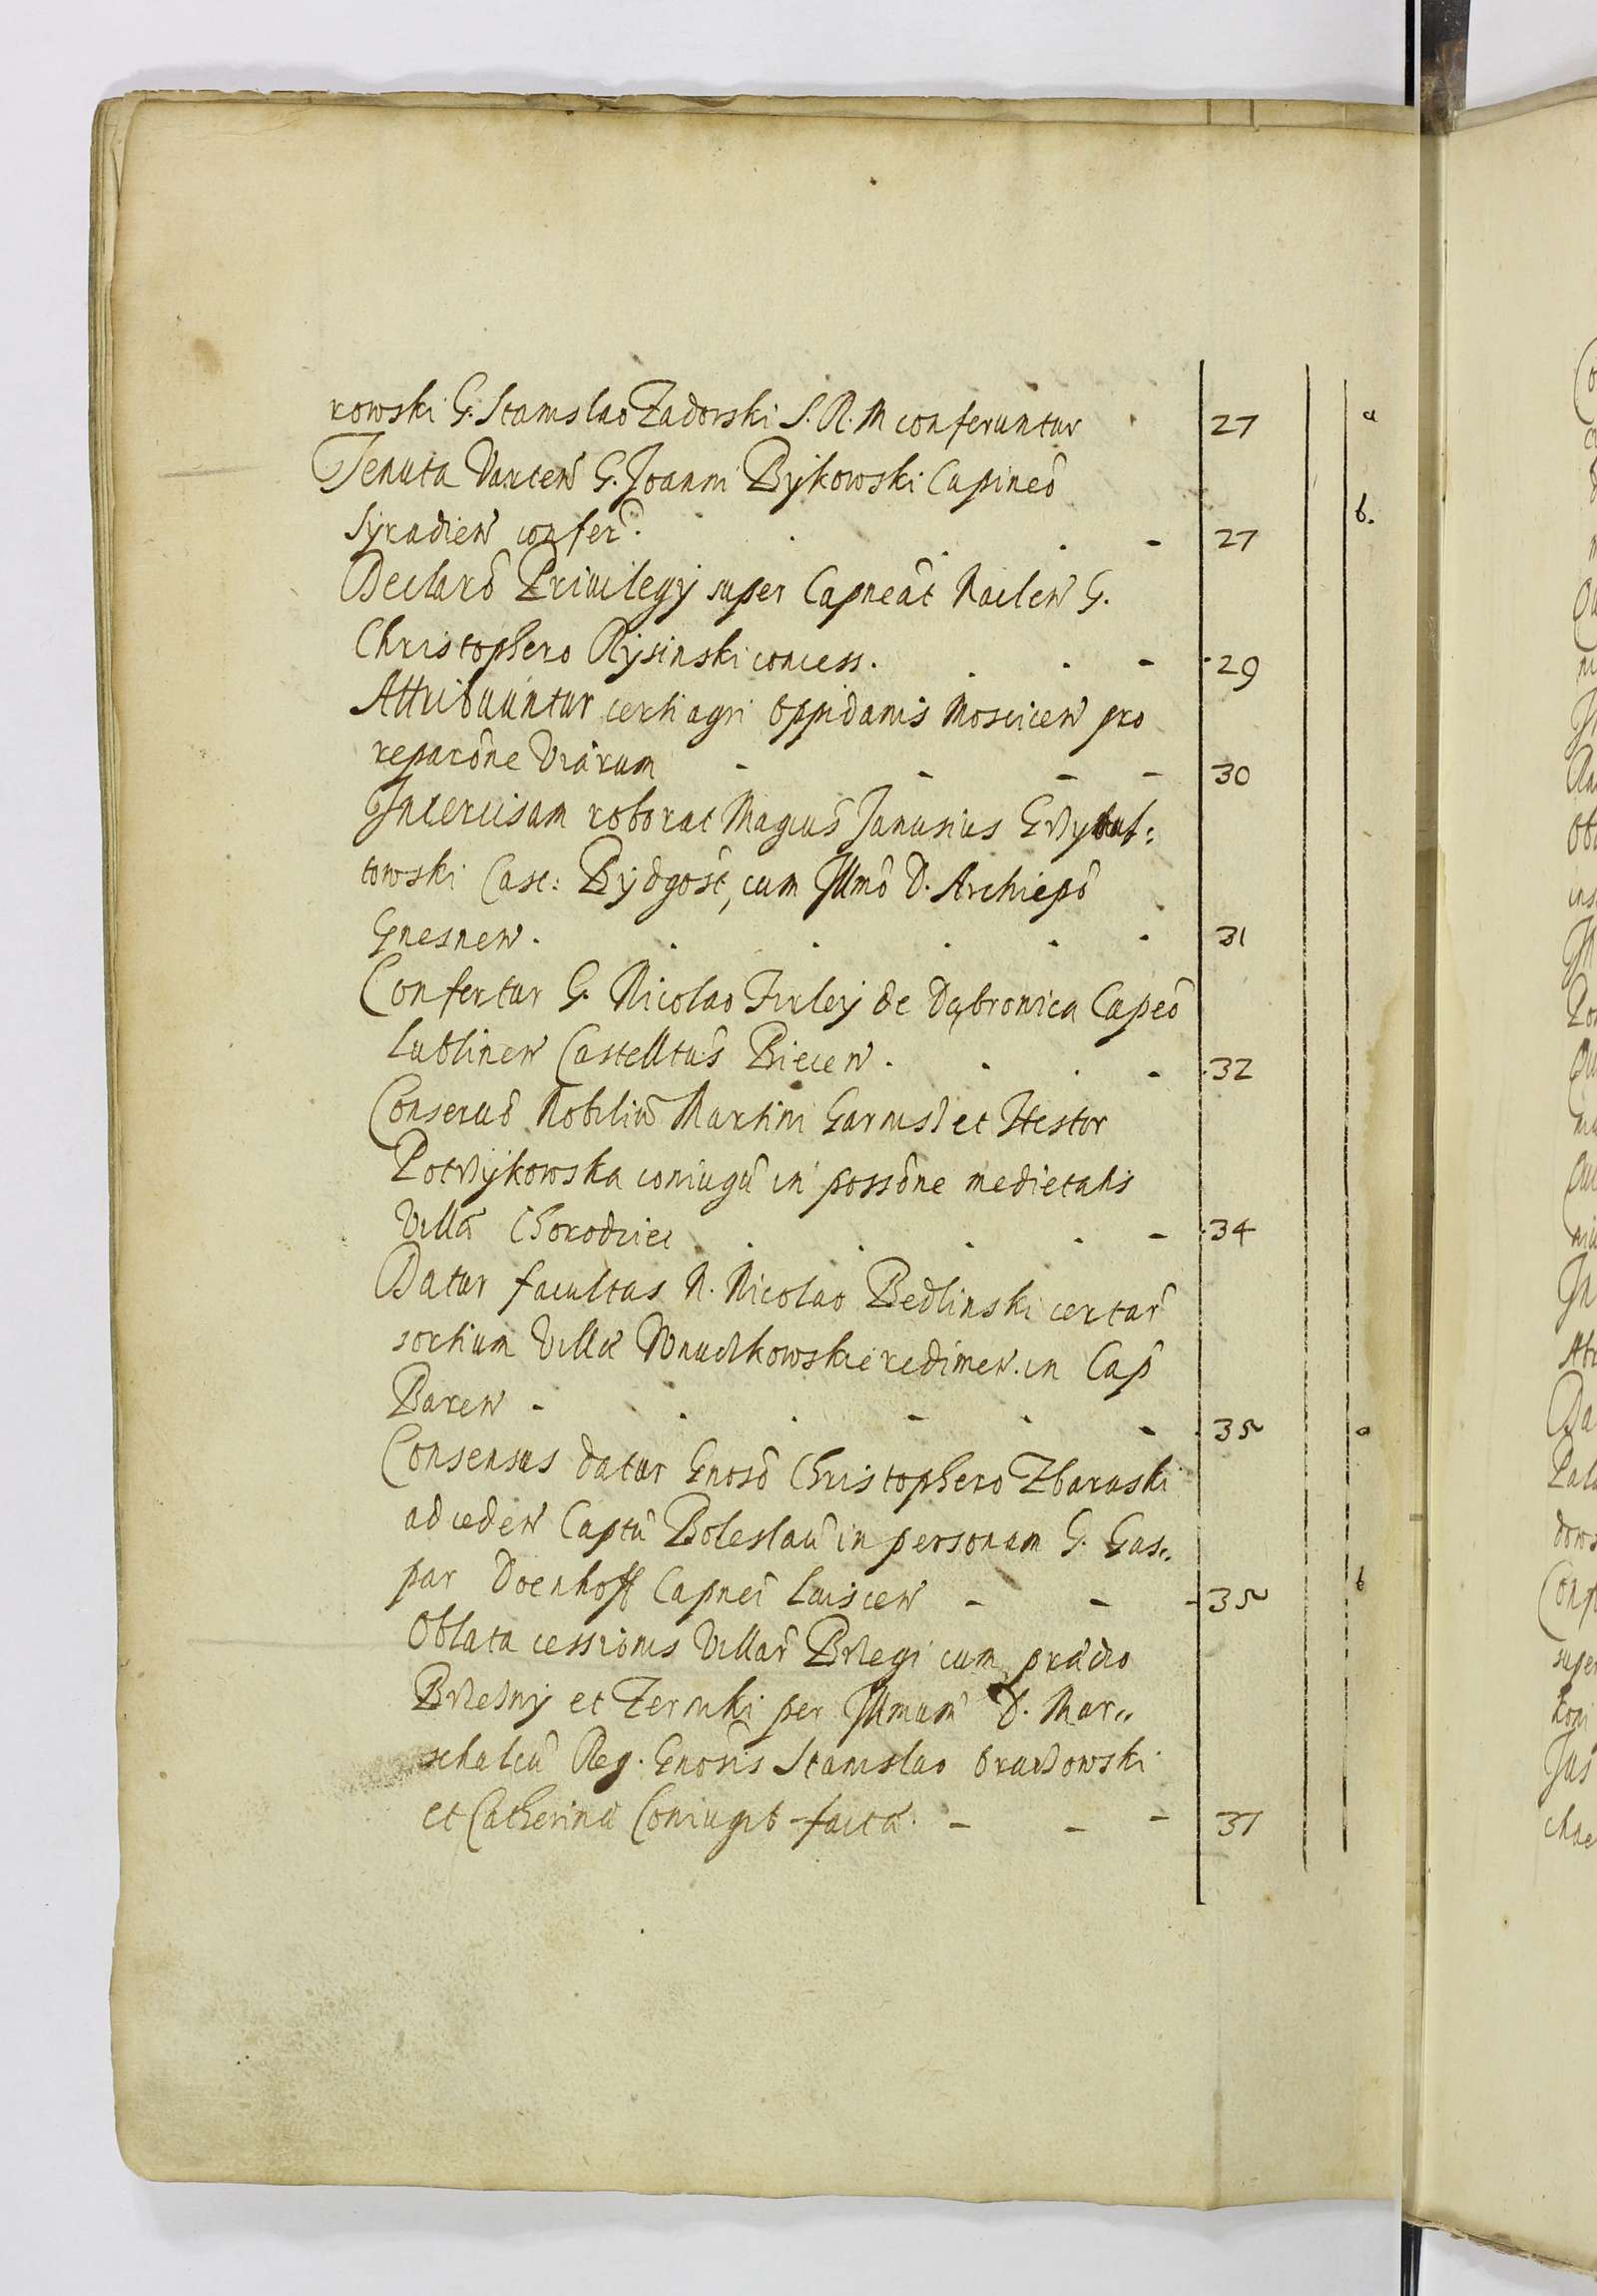 rowski G. Stanislao Zadorski S. R. M conferuntur 27 a
Tenuta Varten G. Joanni Bykowski Capineo
Syradien confer. 27 b.
Declaro Privilegy super Capneat Naclen G.
Christophero Rysinski concess. 29
Attribuuntur certi agri oppidanis Moscicen pro
reparone viarum 30
Intercisam roborat Magcus Janusius
towski Cast: Bydgost, cum Illmo D. Archiepo
Gnesnen. 31
Confertur G. Nicolao Firley de Dąbrowica Capeo
Lublinen Castelltus Biecen. 32
Conservo Nobiliu Martini et Hester
coniugu in possone medietatis
Villa Chorodziec 34
Datur facultas N. Nicolao Bedlinski certar
sortium Villae redimen. in Cap
Baren 35 a
Consensus datur Gnoso Christophero Zbaraski
ad ceden Captu Boleslau in personam G. Gas„
par Doenhoff Capnei Laiscen 35 b
Oblata cessionis Villar Brzegi cum praedio
et per Illmum D. Mar„
schalcu Reg. Gnosis Stanislao
et Catherinae Coniugib facta. 37